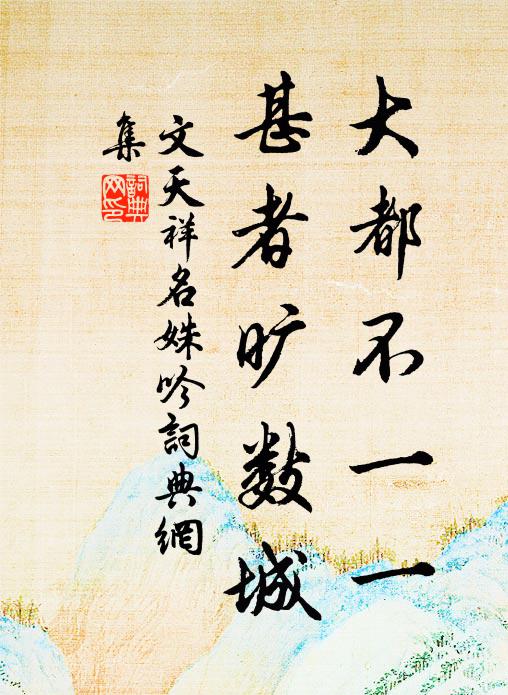 大都不一一
甚者旷数城
文天祥名姝吟詞典網
集
詞典網印